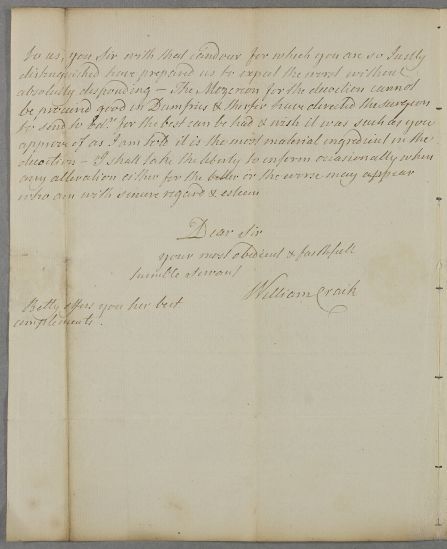 to us, you Sir with that candour for which you are so Justly
distinguished have prepared us to expect the worst without
absolutely desponding – The Mezerion for the decoction cannot
be procured good in Dumfries & therfor have directed the surgeon
to send to Edr. for the best can be had & wish it was such as you
approve of as I am told it is the most material ingredient in the
decoction – I shall take the liberty to inform occasionally when
any alteration either for the better or the worse may appear
who am with sincere regard & esteem
Dear Sir
your most obedient & faithfull
humble servant
William Craik
Betty offers you her best
complements.